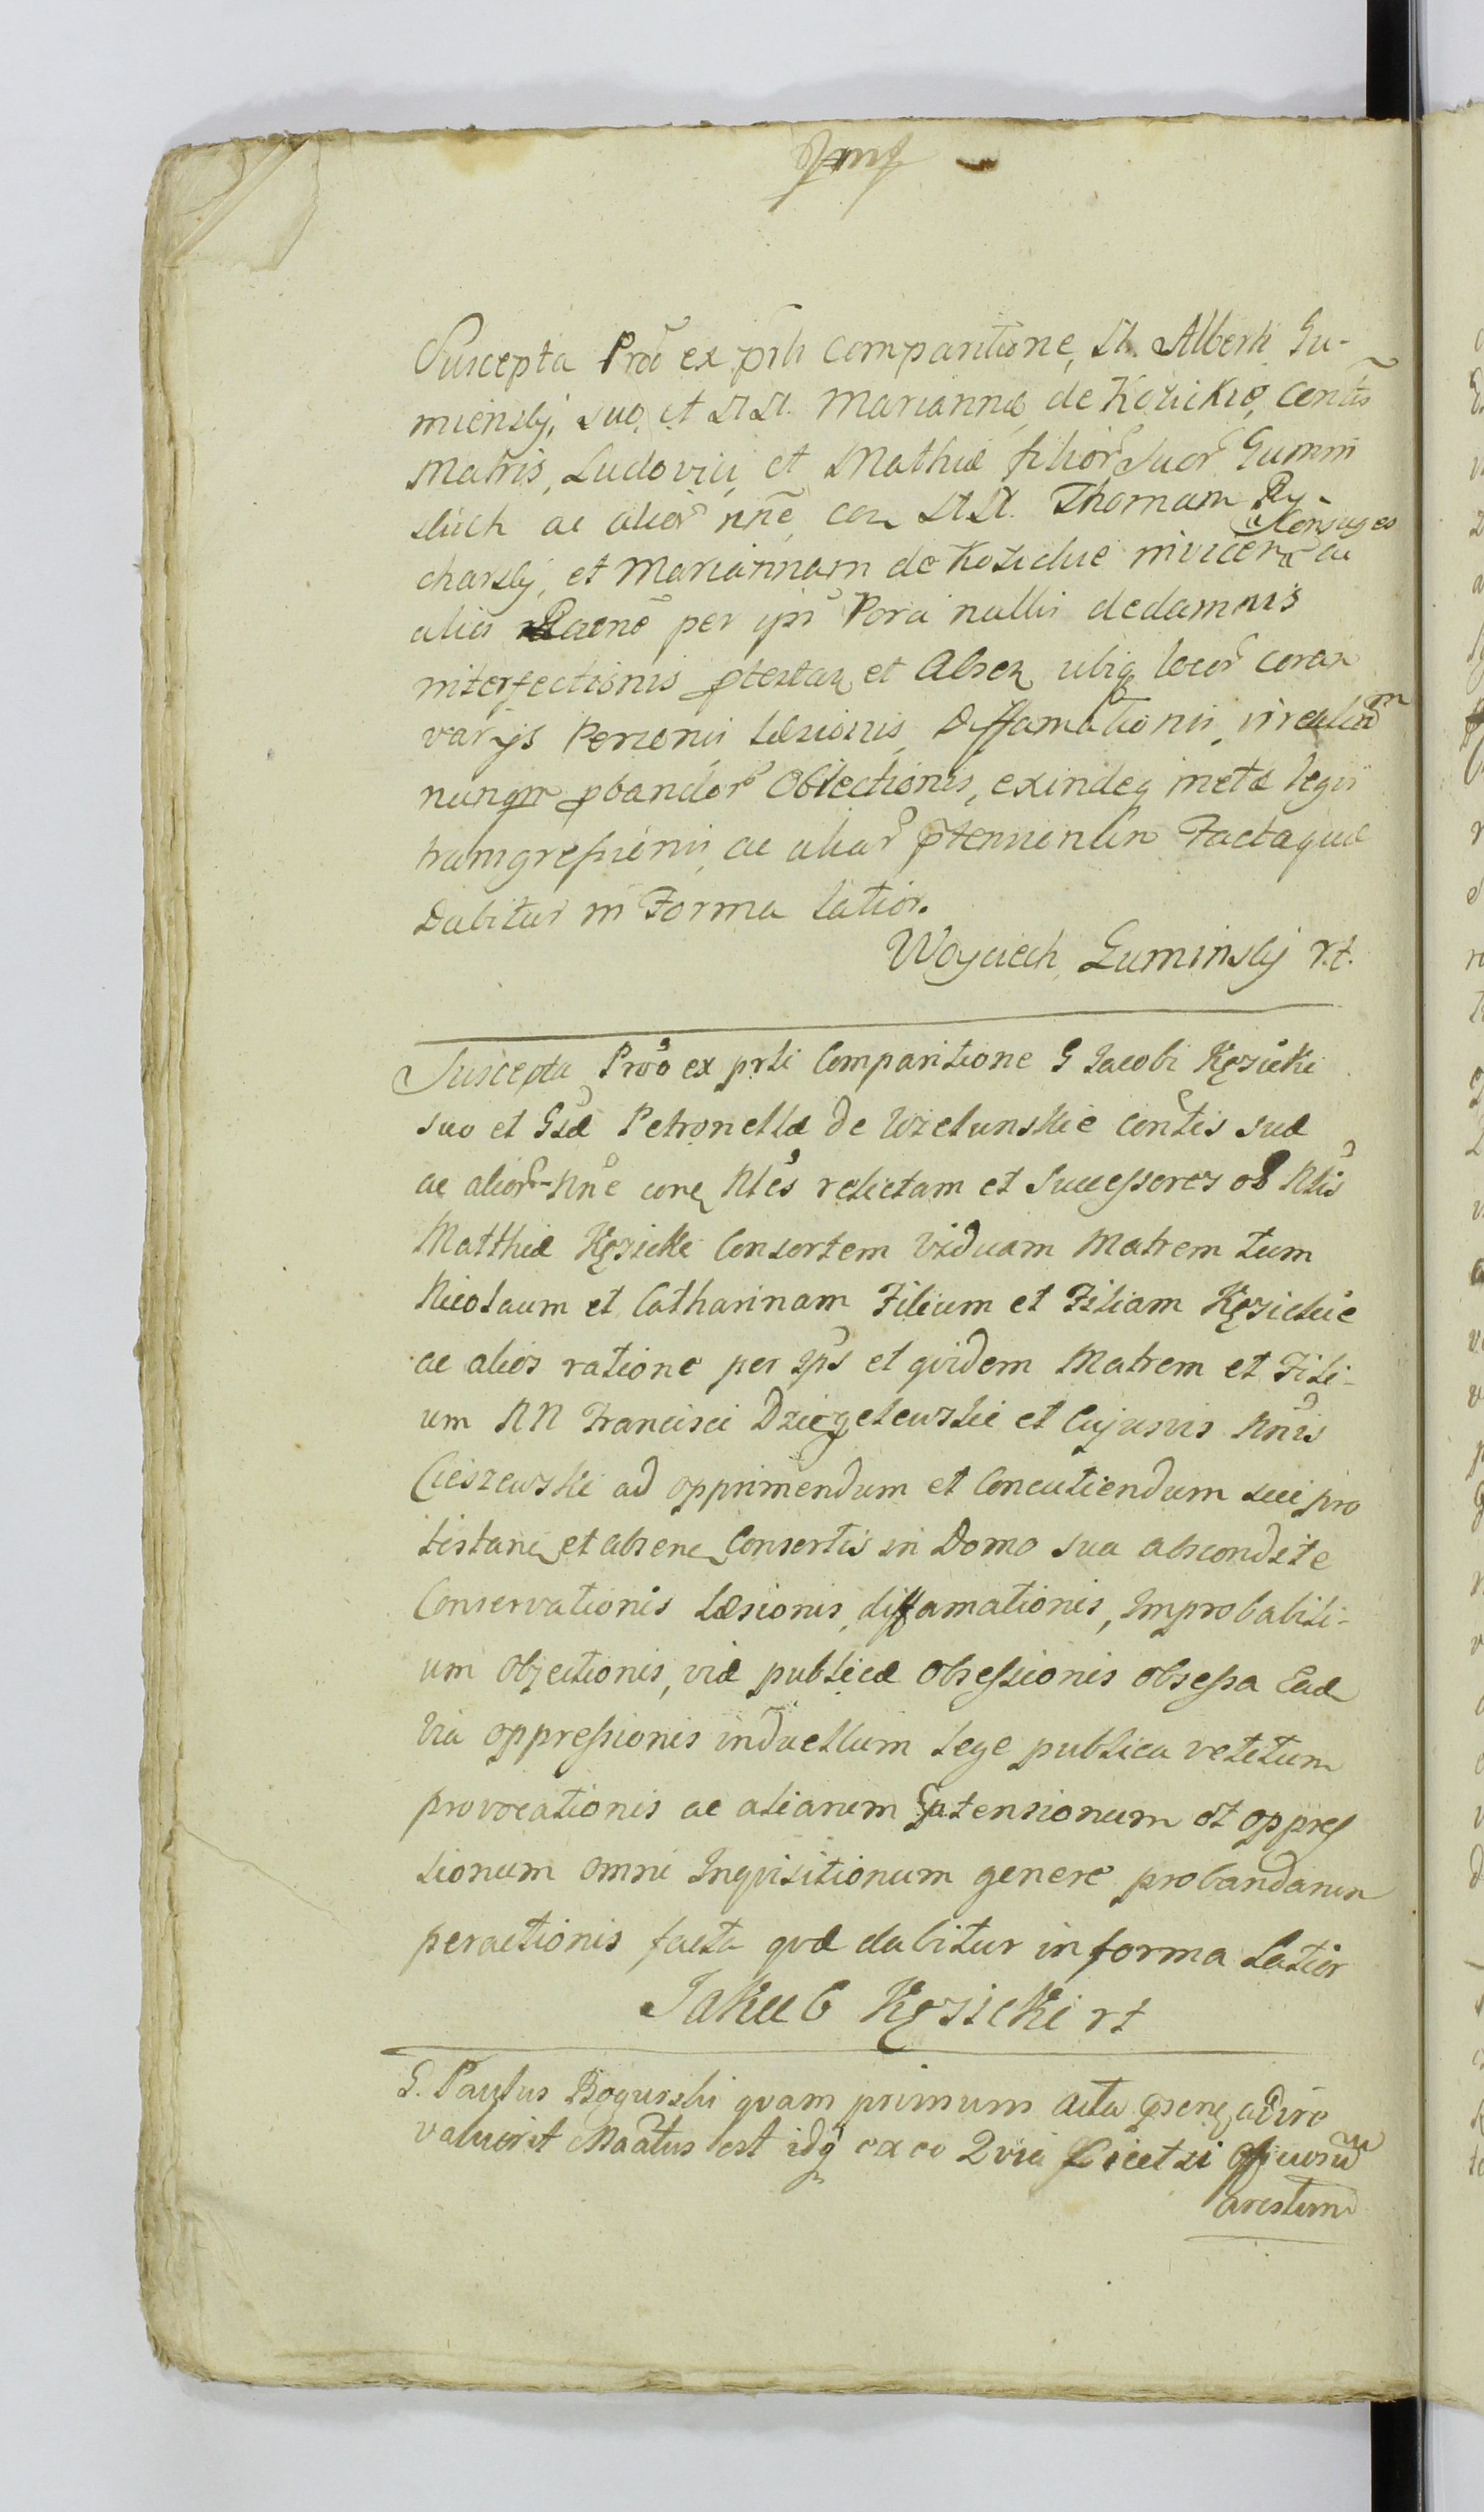 Suscepta Prõo ex prti comparitione, N. Alberti Gu-
mienskj, suo, et NN. Mariannæ, de Kozickie, contis
Matris, Ludovici, et Mathiæ filior suor Gumin
skich ac alior nñe, con NN. Thomam Ry-
charskj, et Mariannam de Kozickie invicem Conjuges ac
alios Raone per ips
interfectionis ptestan et Absen ubiq locor coram
varijs Personis Læsionis, Diffamationis, irealium
nunqm pbandor Obiectionis, exindeq metæ legis
transgressionis, ac aliar ptensionum Factaquæ
Dabitur in Forma latior.
Woyciech Guminskj r.t.
Suscepta Proõ ex prti Comparitione G Jacobi Kęzicki
suo et Gsæ Petronellæ de Wzelunskie contis suæ
ac alior Nñe con Nles relictam et Successores ol Nlis
Matthiæ Kęzicki Consortem Viduam Matrem tum
Nicolaum et Catharinam Filium et Filiam Kęzickie
ac alios ratione per Jps et quidem Matrem et Fili-
um NN Francisci Dzięgelewskie et Cujusvis Nnis
Cieszewski ad opprimendum et Concutiendum sui pro
testanq et absenq Consortis in Domo sua abscondite
Conservationis Læsionis, diffamationis, Improbabili-
um Objectionis, viæ publicæ Obsessionis obsessa Eade
Via oppressionis induellum lege publica vetitum
provocationis ac aliarum ptensionum et oppres
sionum omni Inquisitionum genere probandarum
peractionis facta quæ dabitur in forma Latior
Jakub Kęzicki rt
G. Paulus Bogurski quam primum acta psenq adire
valuerit Maatus est idq ex eo Quia Licet si
arestum